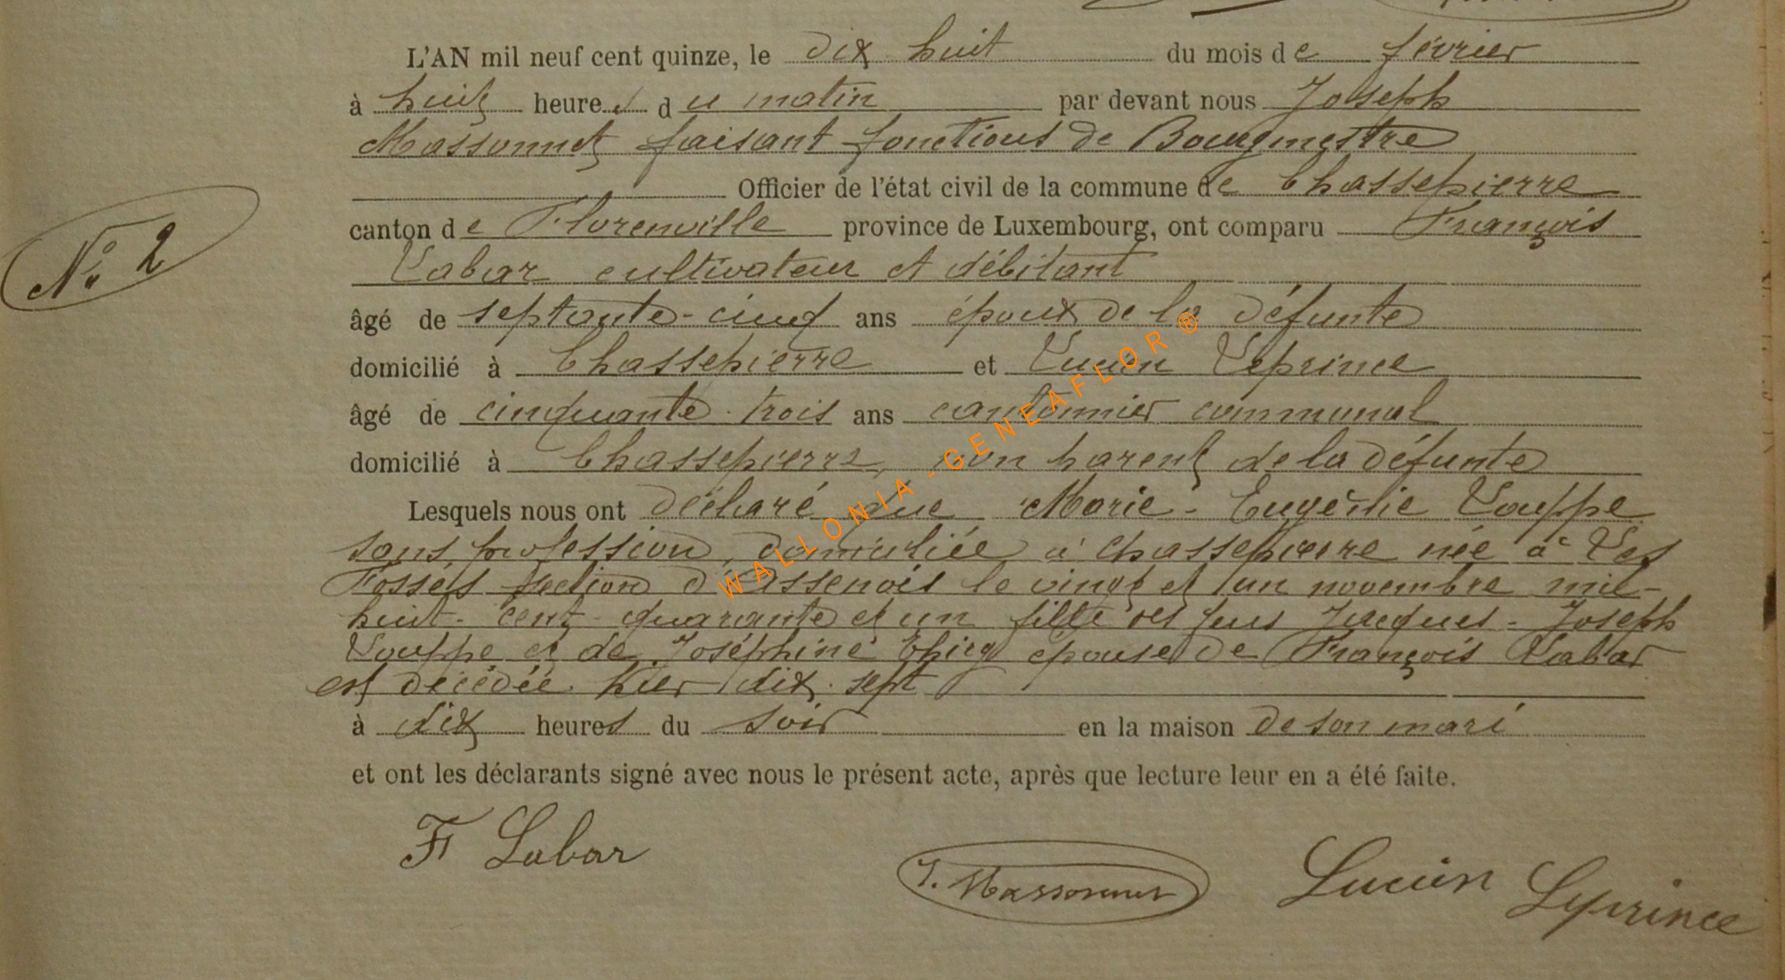 L'AN mil neuf cent quinze, le dix huit du mois de février
à huit heures du matin par devant nous Joseph
Massonnet faisant fonctions de Bourgmestre
Officier de l'état civil de la commune de Chassepierre
N° 2
canton de Florenville province de Luxembourg, ont comparu François
Labar cultivateur et débitant
âgé de septante-cinq ans époux de la défunte
domicilié à Chassepierre et Lucien Leprince
âgé de cinquante-trois ans cantonnier communal
domicilié à Chassepierre, non parent de la défunte
Lesquels nous ont déclaré que Marie-Eugénie Louppe
sans profession, domiciliée à Chassepierre née à Les
Fossés section d'Assenois le vingt et un novembre mil-
huit-cent-quarante et un fille des feus Jacques-Joseph
Louppe et de Joséphine épouse de François Labar
est décédée hier dix-sept
à dix heures du soir en la maison de son mari
et ont les déclarants signé avec nous le présent acte, après que lecture leur en a été faite.
F Labar
J. Massonnet
Lucien Leprince
WALLONIA - GENEAFLOR ®